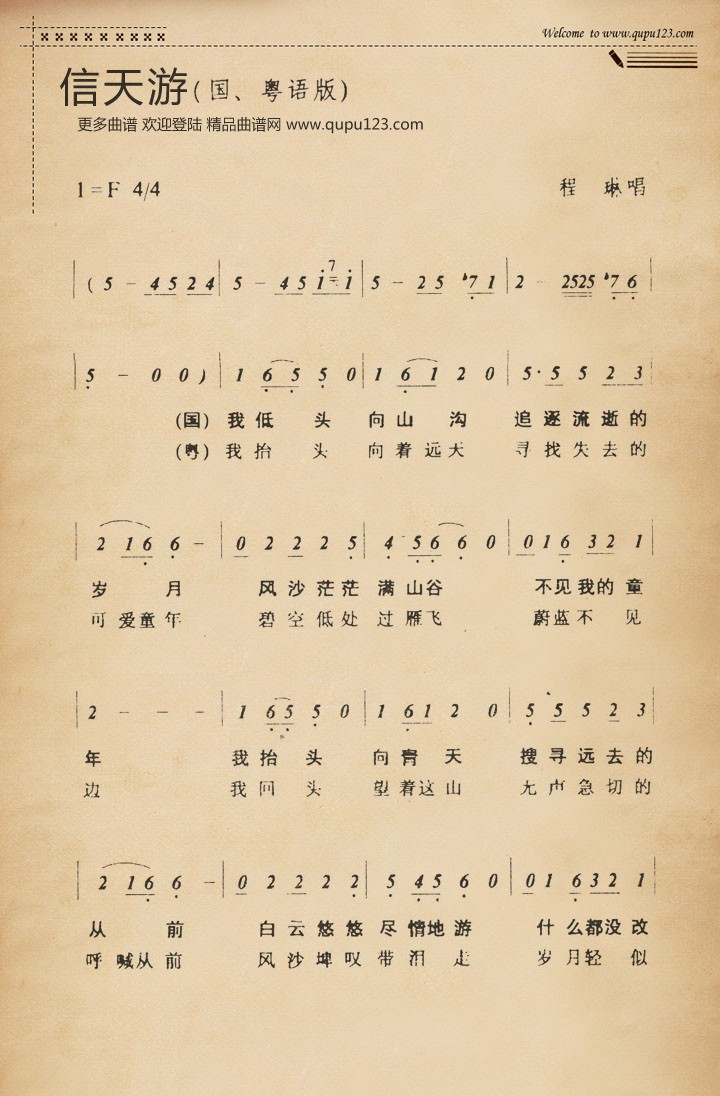 Welcome to www.qupu123.com
信天游(国、粤语版)
更多曲谱 欢迎登陆 精品曲谱网 www.qupu123.com
1=F 4/4 程 琳唱
( 5 - 4 5 2 4 | 5 - 4 5 i 7 i | 5 - 2 5 ♭7 1 | 2 - 2525 ♭7 6 |
5 - 0 0 ) | 1 6 5 5 0 | 1 6 1 2 0 | 5· 5 5 2 3 |
(国) 我 低 头 向 山 沟 追 逐 流 逝 的
(粤) 我 抬 头 向 着 远 天 寻 找 失 去 的
2 1 6 6 - | 0 2 2 2 5 | 4 5 6 6 0 | 0 1 6 3 2 1 |
岁 月 风 沙 茫 茫 满 山 谷 不 见 我 的 童
可 爱 童 年 碧 空 低 处 过 雁 飞 蔚 蓝 不 见
2 - - - | 1 6 5 5 0 | 1 6 1 2 0 | 5 5 5 2 3 |
年 我 抬 头 向 青 天 搜 寻 远 去 的
边 我 回 头 望 着 这 山 无 声 急 切 的
2 1 6 6 - | 0 2 2 2 2 | 5 4 5 6 0 | 0 1 6 3 2 1 |
从 前 白 云 悠 悠 尽 情 地 游 什 么 都 没 改
呼 喊 从 前 风 沙 埤 叹 带 泪 走 岁 月 轻 似